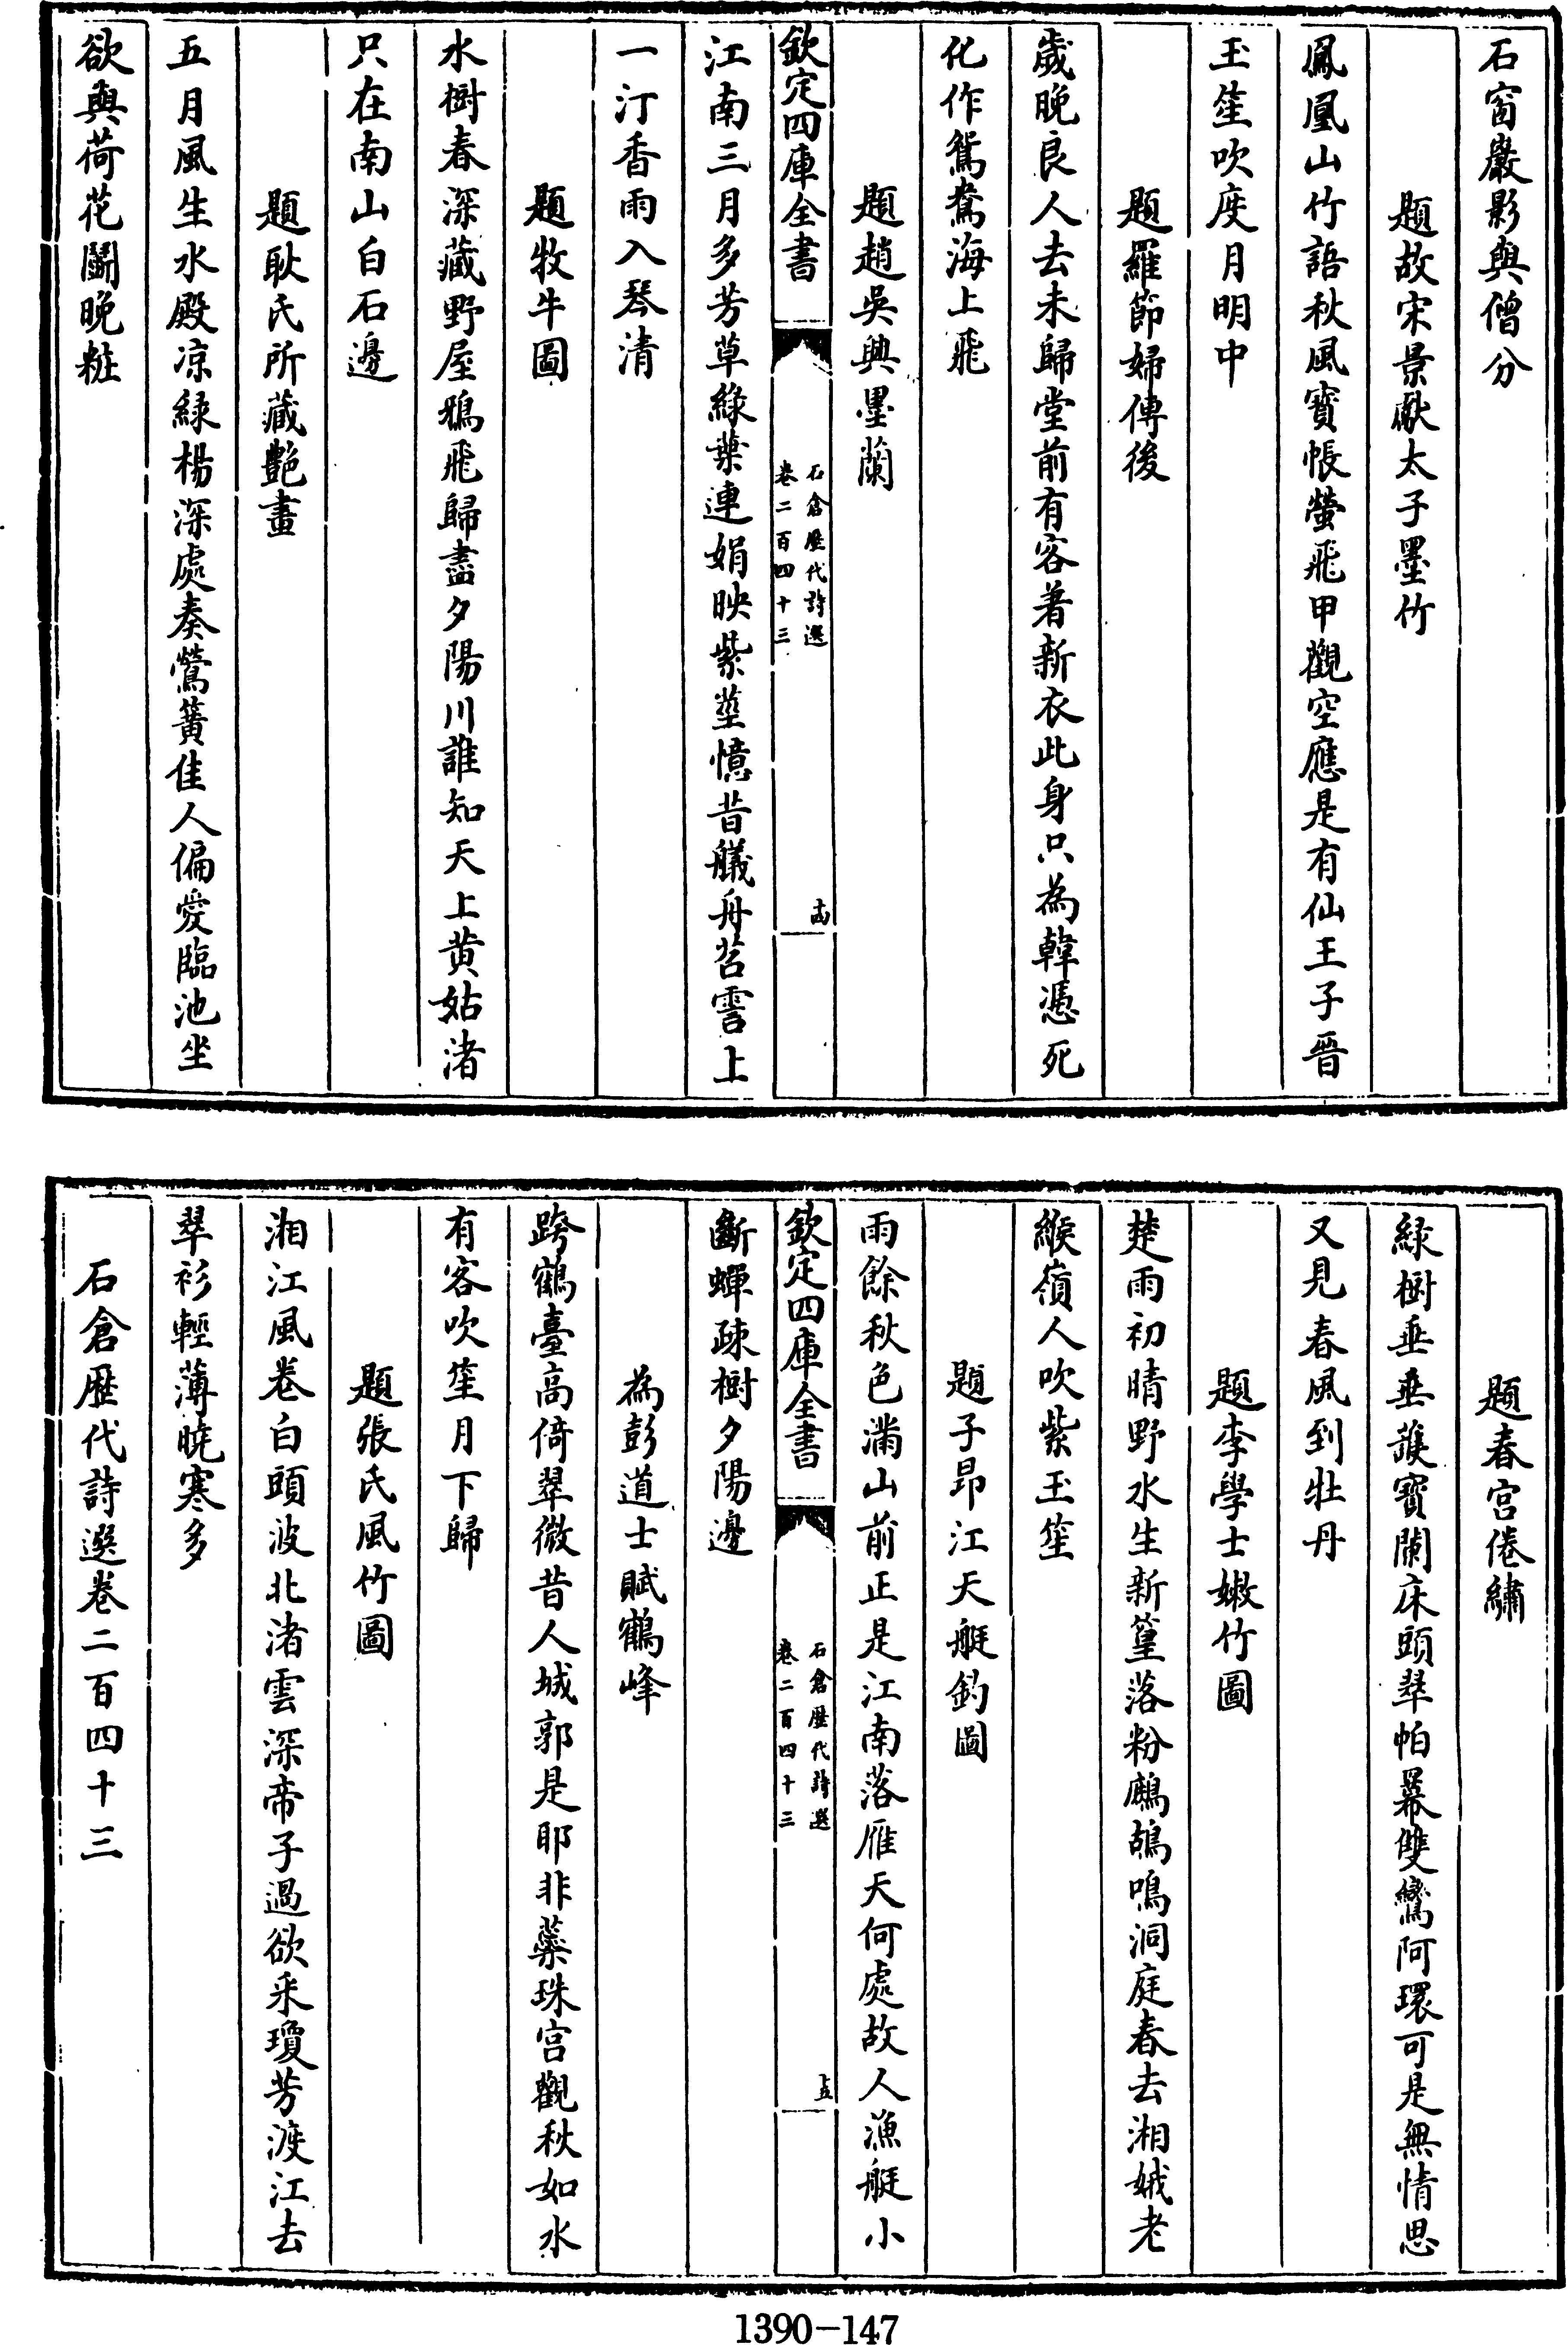 石窗巖影與僧分
題故宋景獻太子墨竹
鳳凰山竹語秋風寳帳螢飛甲觀空應是有仙王子晉
玉笙吹度月明中
題羅節婦傳後
歲晚良人去未歸堂前有客著新衣此身只為韓憑死
化作鴛鴦海上飛
題趙吳興墨蘭
欽定四庫全書
石倉歷代詩選
卷二百四十三
十四
江南三月多芳草綠葉連娟映紫莖憶昔艤舟苕霅上
一汀香雨入琴清
題牧牛圖
水樹春深藏野屋鴉飛歸盡夕陽川誰知天上黄姑渚
只在南山白石邊
題耿氏所藏艶畫
五月風生水殿凉緑楊深處奏鶯簧佳人偏愛臨池坐
欲與荷花鬭晚粧
題春宫倦繡
緑樹垂垂䕶寳闌床頭翠帕羃雙鸞阿環可是無情思
又見春風到牡丹
題李學士嫩竹圖
楚雨初晴野水生新篁落粉鷓鴣鳴洞庭春去湘娥老
緱嶺人吹紫玉笙
題子昂江天艇釣圖
雨餘秋色滿山前正是江南落雁天何處故人漁艇小
欽定四庫全書
石倉歷代詩選
卷二百四十三
十五
斷蟬疎樹夕陽邊
為彭道士賦鶴峰
跨鶴臺高倚翠微昔人城郭是耶非蘂珠宫觀秋如水
有客吹笙月下歸
題張氏風竹圖
湘江風卷白頭波北渚雲深帝子過欲采瓊芳渡江去
翠衫輕薄曉寒多
石倉歷代詩選卷二百四十三
1390-147